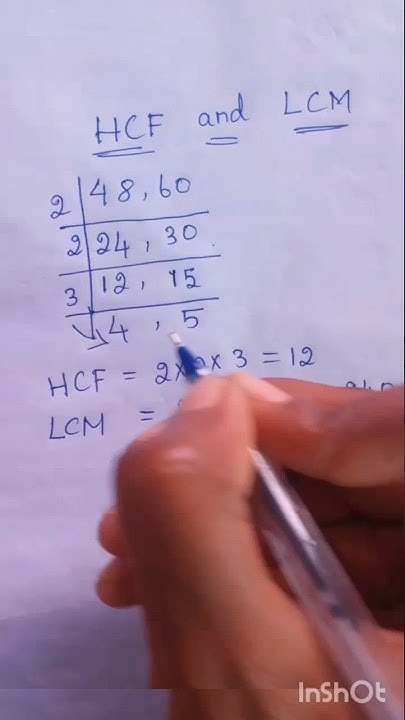 HCF and LCM
2 | 48, 60
2 | 24, 30
3 | 12, 15
4, 5
HCF = 2×2×3 = 12
LCM =
InShOt